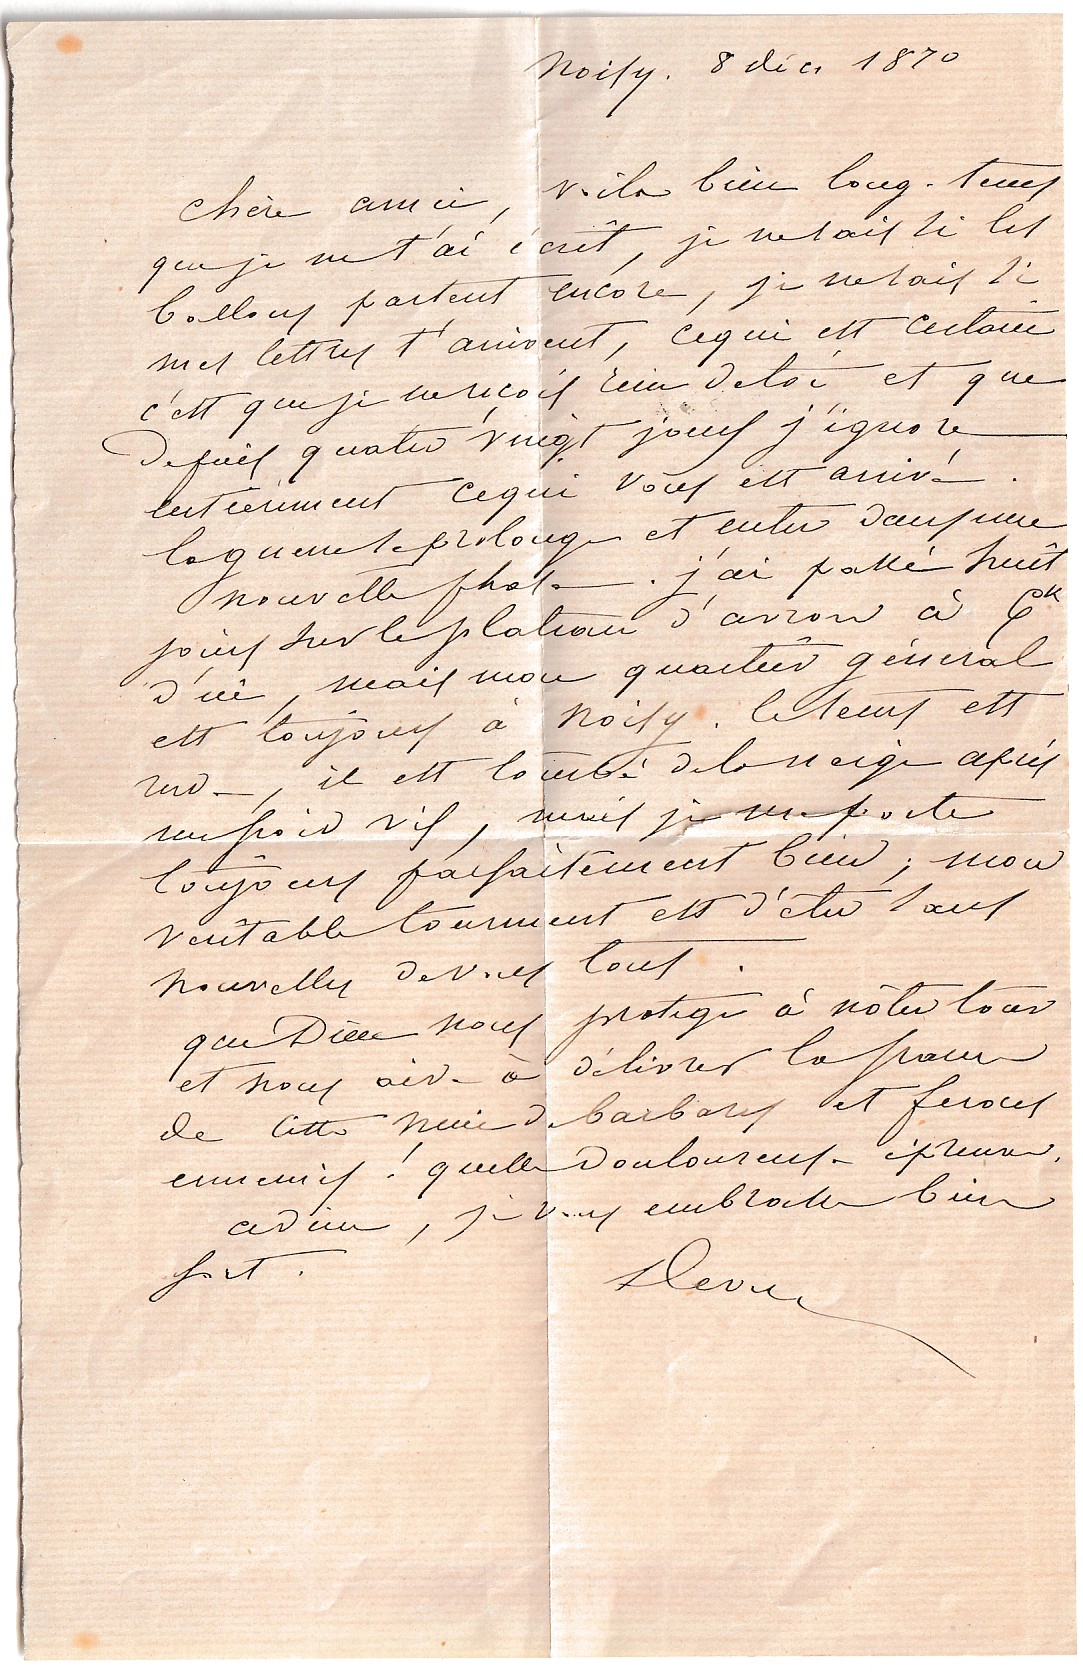 Noisy. 8 déc. 1870
chère amie, voila bien long-tems
que je ne t'ai écrit, je ne sais si les
ballons partent encore, je ne sais si
mes lettres t'arrivent, ce qui est certain
c'est que je ne reçois rien de toi et que
depuis quatre vingt jours j'ignore
entièrement ce qui vous est arrivé.
la guerre se prolonge et entre dans une
nouvelle phase. j'ai passé huit
jours sur le plateau d'avron à 6k
d'ici, mais mon quartier général
est toujours à Noisy. le tems est
rude, il est tombé de la neige après
un froid vif, mais je me porte
toujours parfaitement bien; mon
véritable tourment est d'être sans
nouvelles de vous tous.
que Dieu nous protège à nôtre tour
et nous aide à délivrer la france
de cette nuée de barbares et féroces
ennemis! quelle douloureuse épreuve.
adieu, je vous embrasse bien
fort.